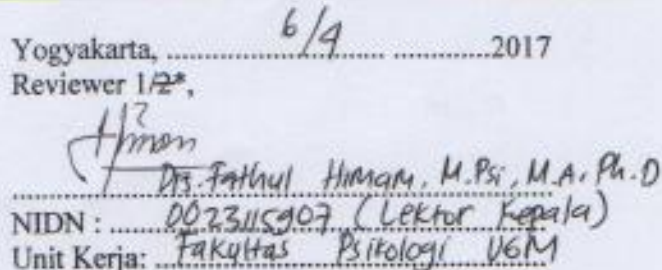 Yogyakarta, ........ 6/4 ........ 2017
Reviewer 1/2*,
Drs. Fathul Himam, M.Psi, M.A, Ph.D
NIDN : 0023115907 (Lektor Kepala)
Unit Kerja: Fakultas Psikologi UGM